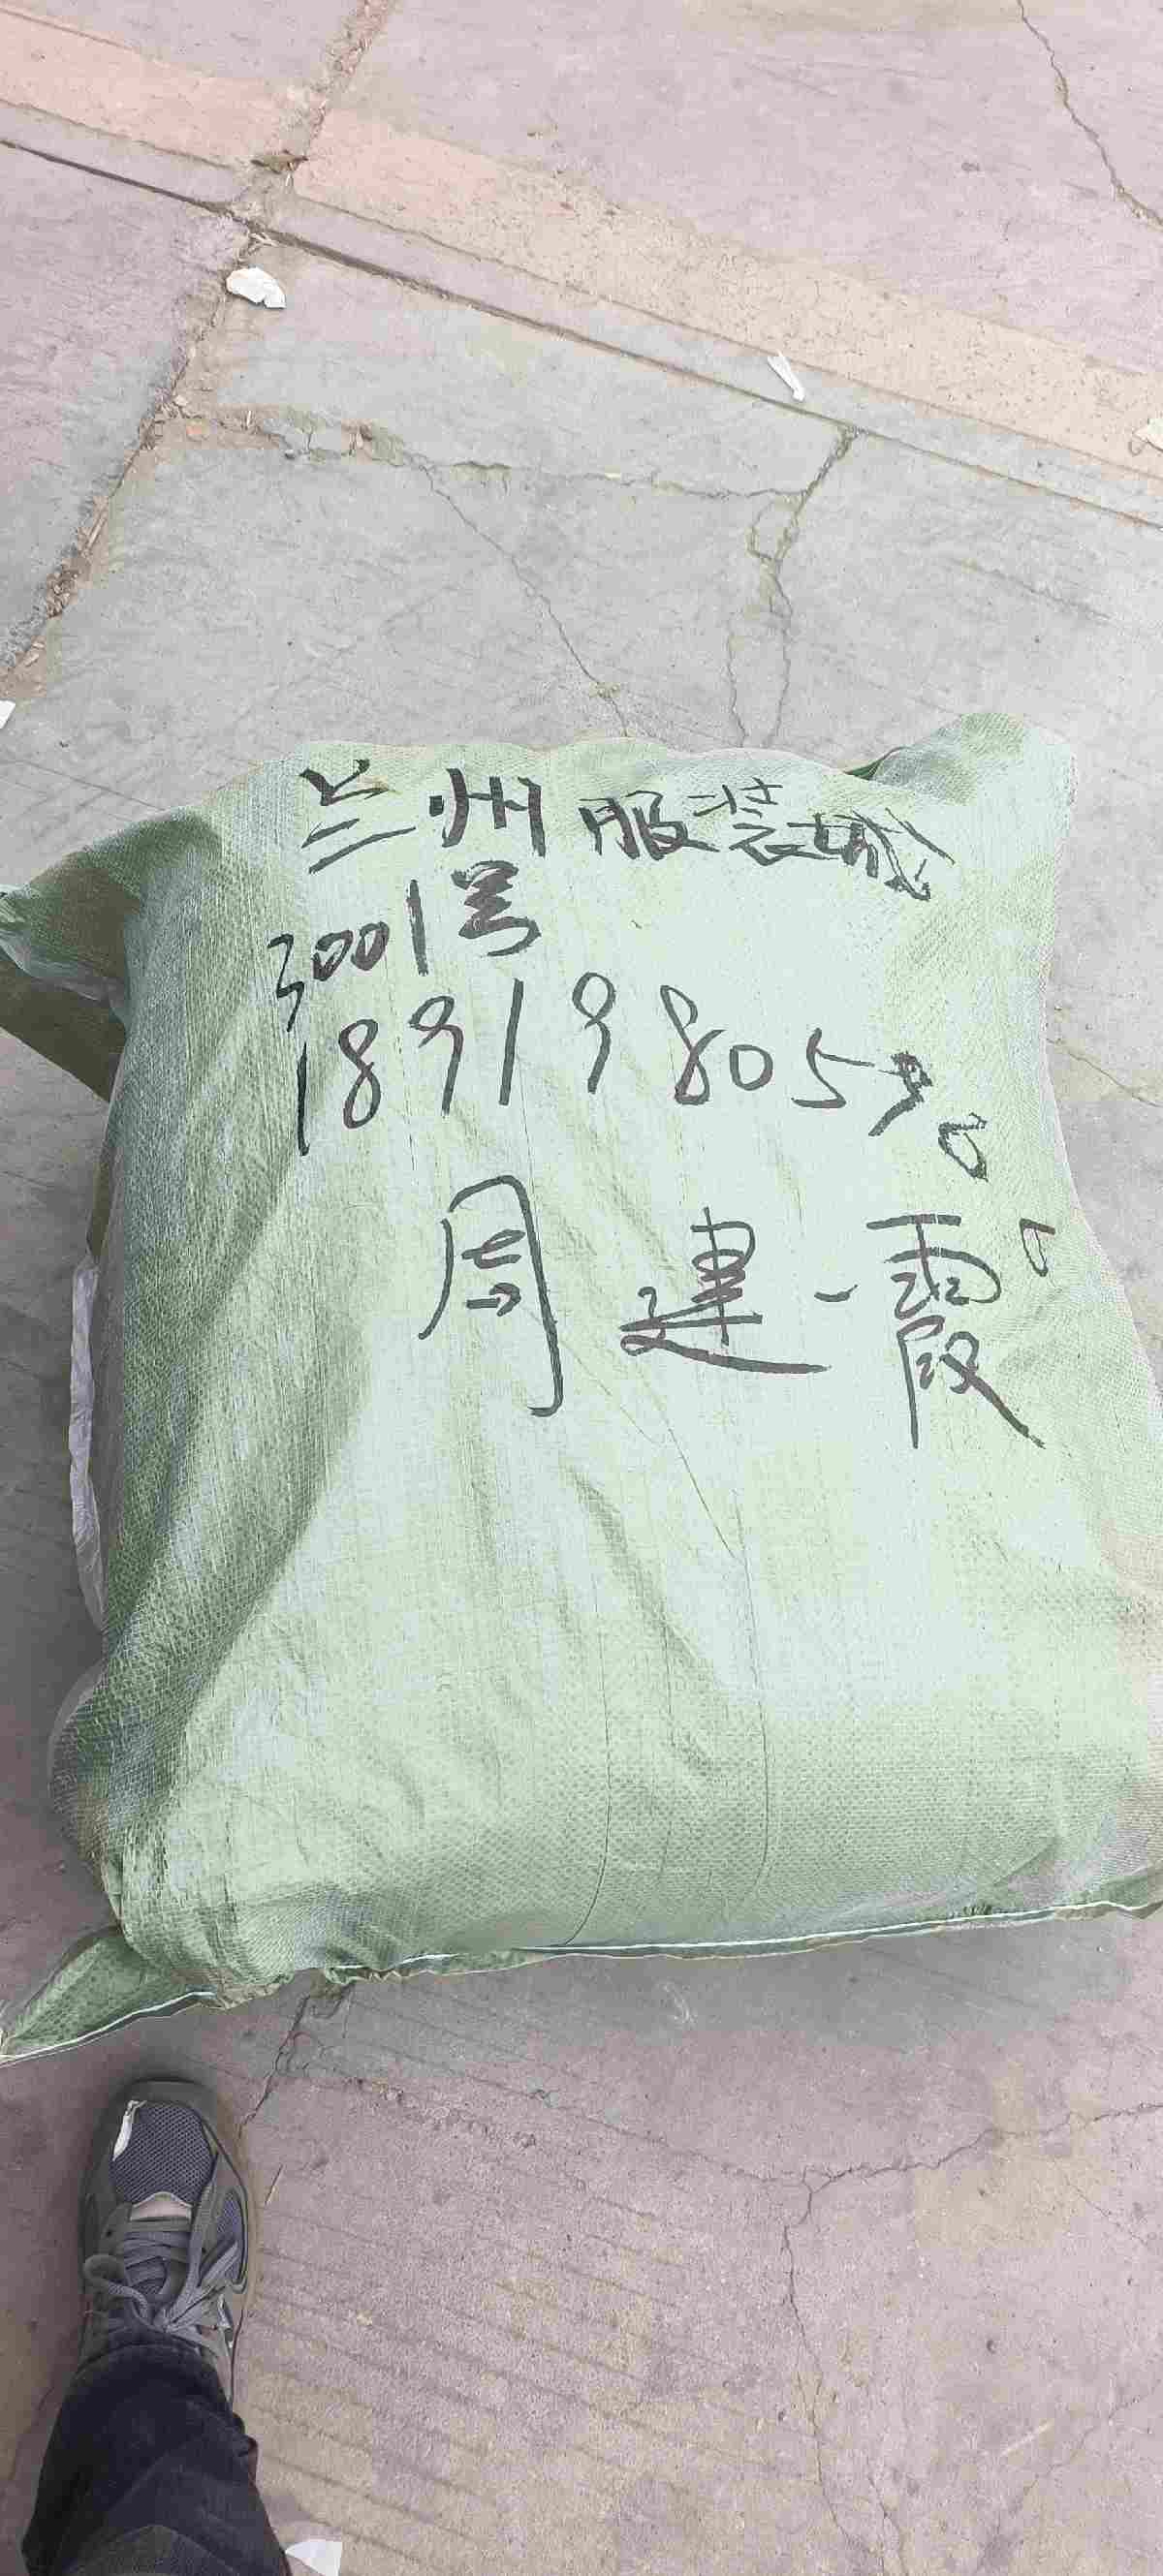 兰州服装城
3001号
18919805900
周建霞